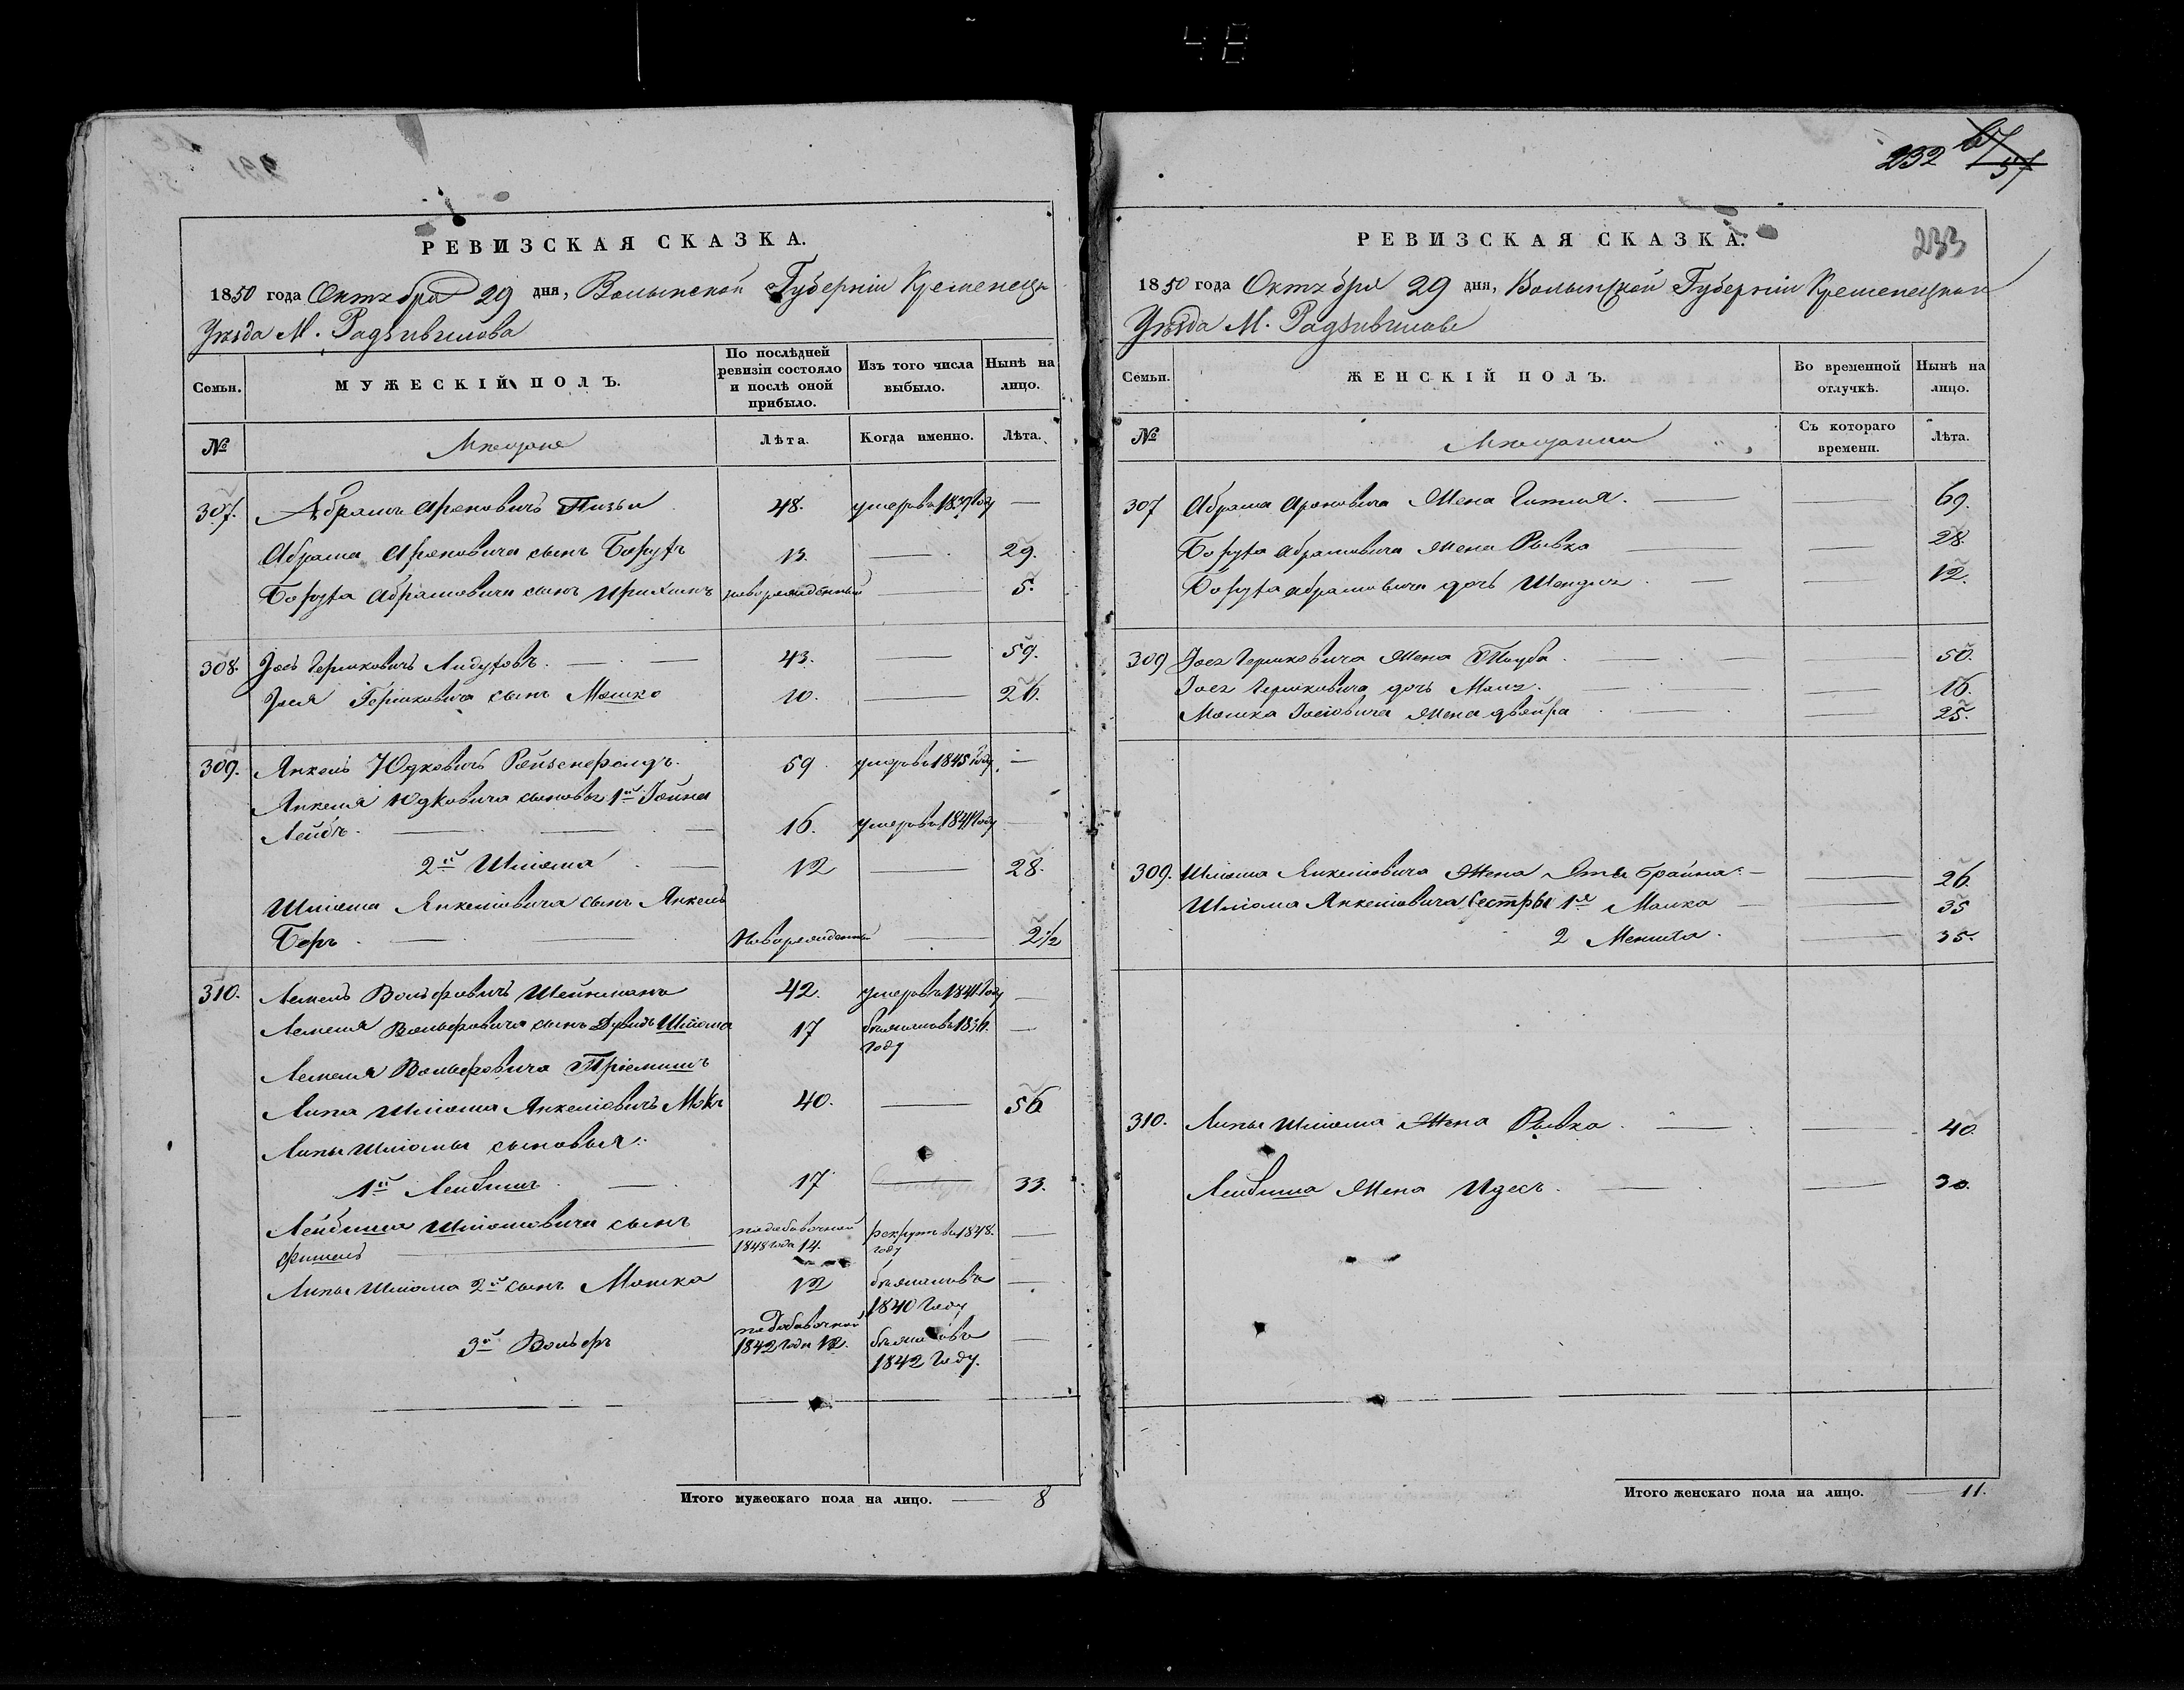 48
РЕВИЗСКАЯ СКАЗКА.
1850 года Октября 29 дня, Волынской Губерніи Кременецк
Уѣзда М. Радзивилова
Семьи.
МУЖЕСКІЙ ПОЛЪ.
По послѣдней ревизіи состояло и послѣ оной прибыло.
Изъ того числа выбыло.
Нынѣ на лицо.
№
Мѣщане
Лѣта.
Когда именно.
Лѣта.
307. Абрамъ Ароновичъ 48. умеръ въ 1839 году —
Абрама Ароновича сынъ Борухъ 13. — 29.
Боруха Абрамовича сынъ новорожденный — 5.
308. Іось Гершковичъ 43. — 59.
Іося Гершковича сынъ Мошко 10. — 26.
309. Янкель Юдковичъ Ройзенфельдъ. 59 умеръ въ 1845 году —
Янкеля Юдковича сыновья 1й Іойна
Лейбъ. — 16. умеръ въ 1841 году —
2й Шліома — 12 — 28.
Шліома Янкеліовича сынъ Янкель
Беръ. — Новорожденный — 2½
310. Лемель Вольфовичъ Шейнманъ 42. умеръ въ 1841 году —
Лемеля Вольфовича сынъ Дувидъ Шліома 17 бѣжалъ въ 1836. году —
Лемеля Вольфовича Пріемышъ
Липа Шліома Янкеліовичъ 40. — 56
Липы Шліомы сыновья:
1й Лейбишъ. — 17 — 33.
Лейбиша Шліомовича сынъ
Фишель — по добавочной 1848 года 14. рекрутъ въ 1848. году —
Липы Шліома 2й сынъ Мошко 12 бѣжалъ въ 1840 году —
3й Вольфъ по добавочной 1842 года 12. бѣжалъ въ 1842 году. —
Итого мужескаго пола на лицо. — 8
232
57
233
РЕВИЗСКАЯ СКАЗКА.
1850 года Октября 29 дня, Волынской Губерніи Кременецкаго
Уѣзда М. Радзивилова
Семьи.
ЖЕНСКІЙ ПОЛЪ.
Во временной отлучкѣ.
Нынѣ на лицо.
№
Мѣщанки
Съ котораго времени.
Лѣта.
307 Абрама Ароновича жена Гитля. — — 69.
Боруха Абрамовича жена Рывка — — 28.
Боруха Абрамовича дочь Шендля. — — 12.
309 Іося Гершковича жена — — 50.
Іося Гершковича дочь — — 16.
Мошка Іосіовича жена Двойра — — 25.
309. Шліома Янкеліовича жена Брайна. — — 26
Шліома Янкеліовича Сестры 1я Малка — — 35
2 — 35.
310. Липы Шліома жена Рывка. — — 40.
Лейбиша жена Идесъ. — — 30.
Итого женскаго пола на лицо. — 11.